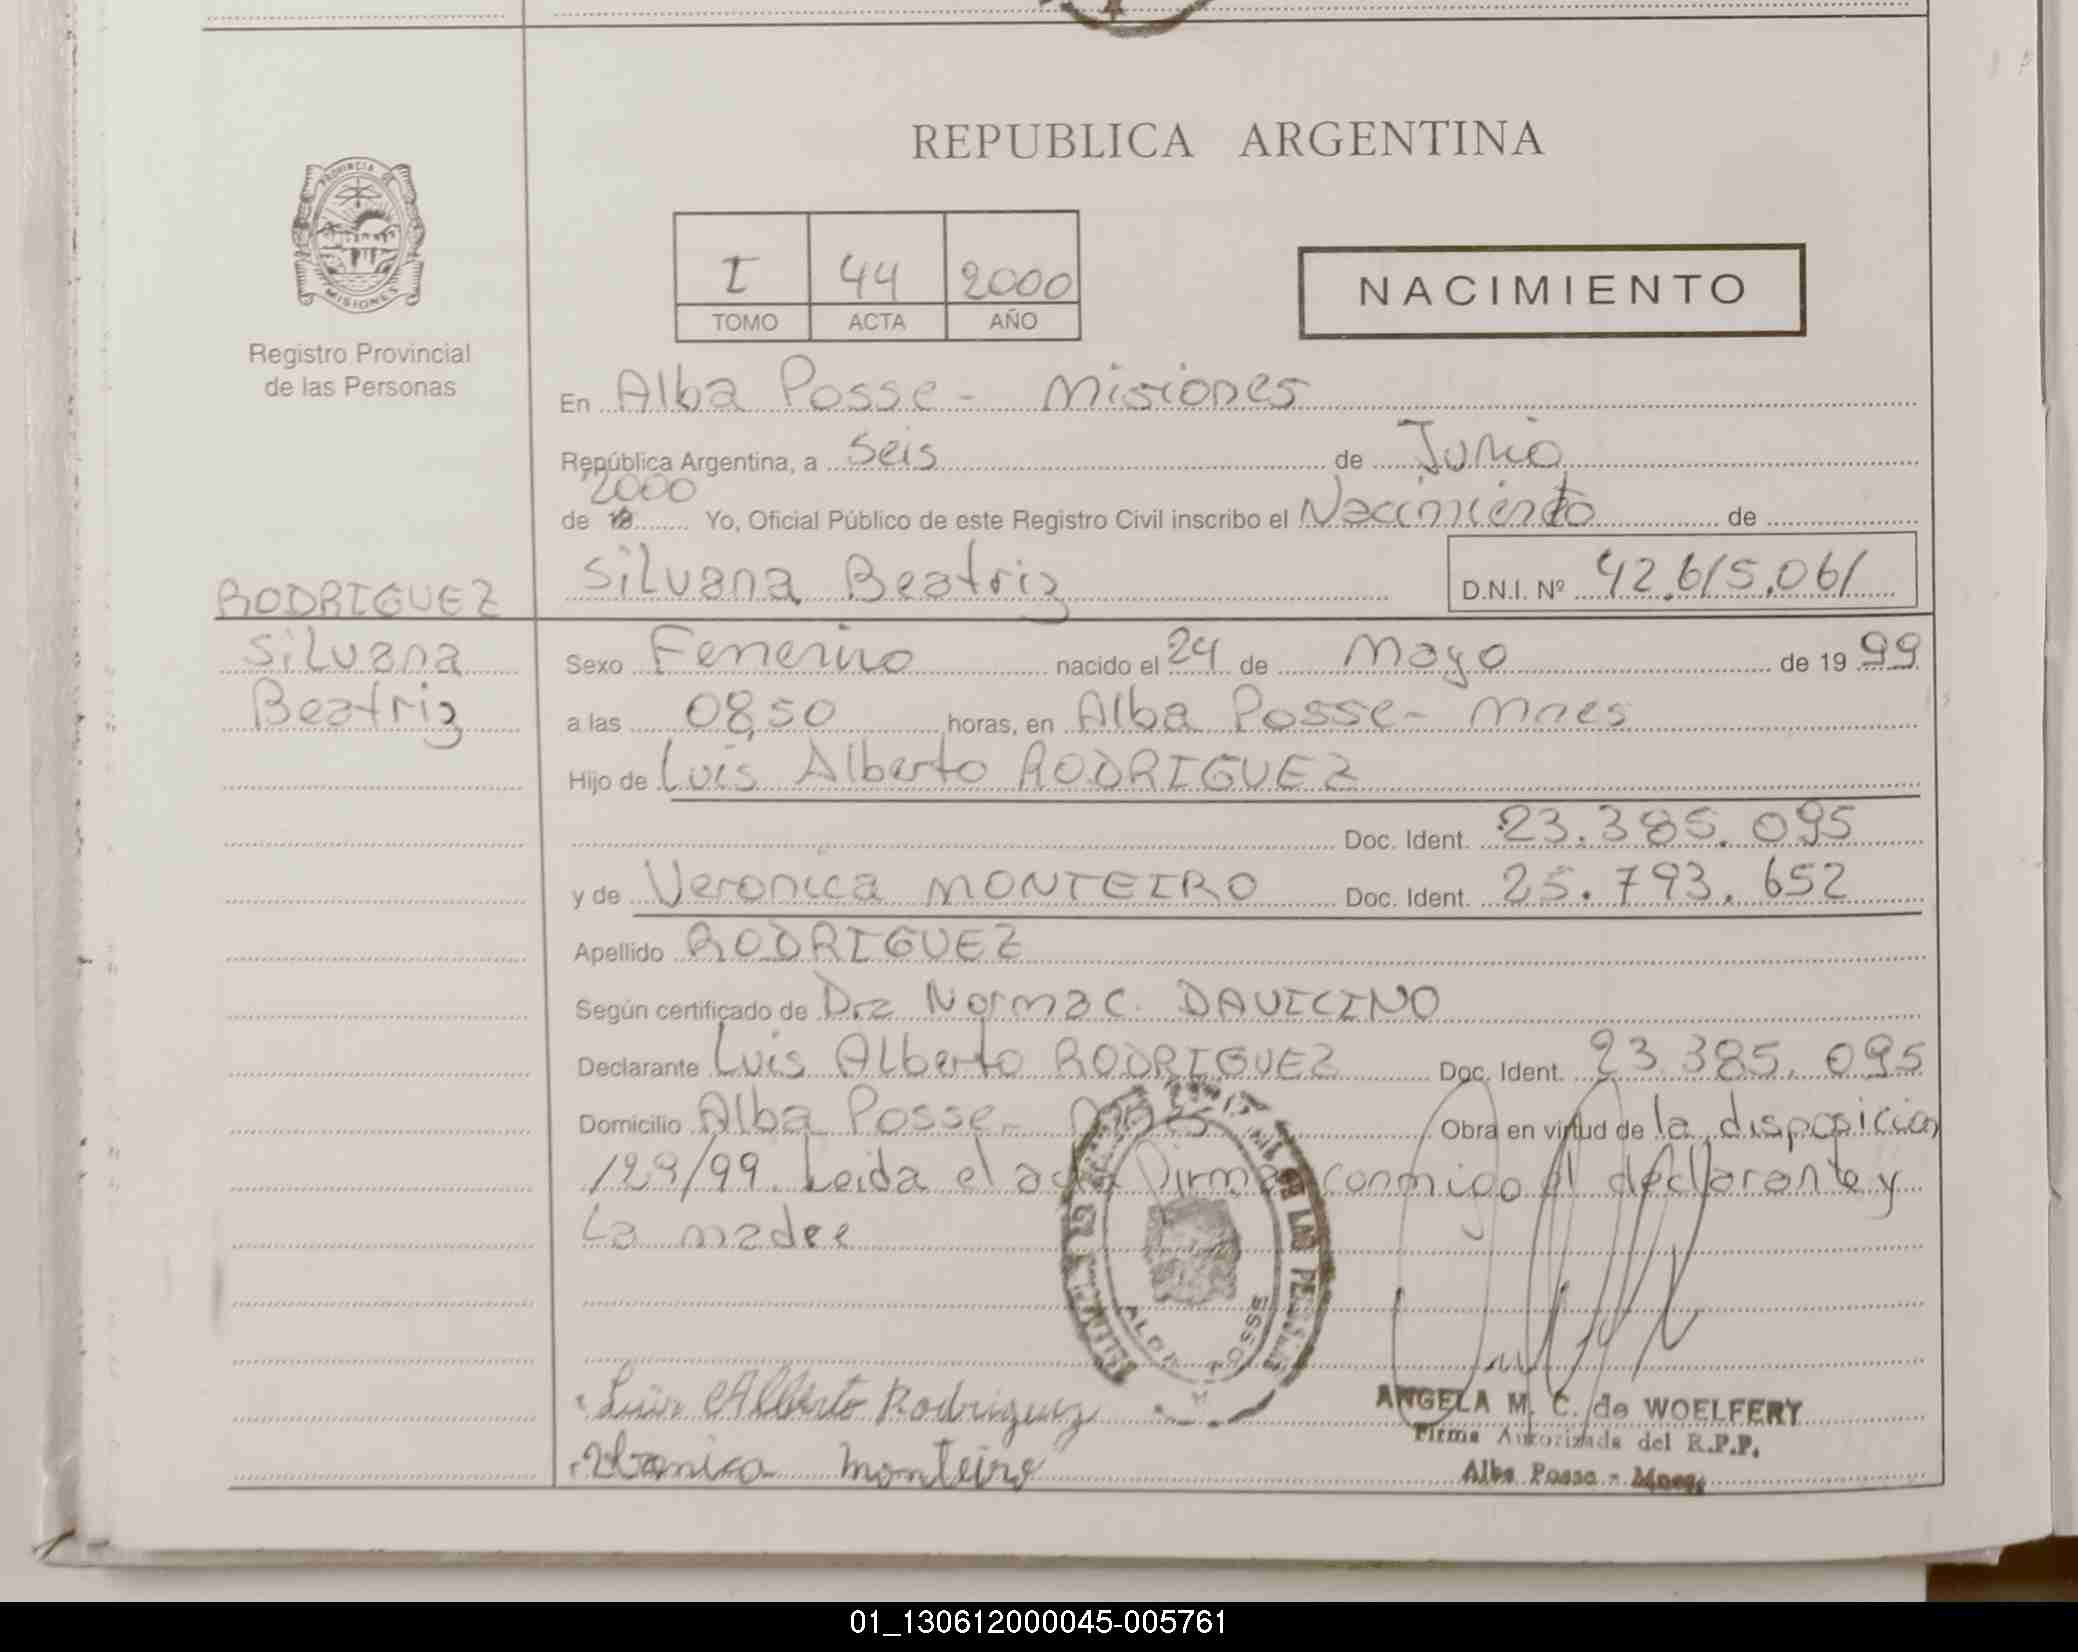 REPUBLICA ARGENTINA
PROVINCIA DE
MISIONES
Registro Provincial
de las Personas
I 44 2000
TOMO ACTA AÑO
NACIMIENTO
En Alba Posse - Misiones
República Argentina, a Seis de Junio
2000
de 19 Yo, Oficial Público de este Registro Civil inscribo el Nacimiento de
Silvana Beatriz D.N.I. Nº 42.615.061
RODRIGUEZ
Silvana
Beatriz
Sexo Femenino nacido el 24 de Mayo de 19 99
a las 08,50 horas, en Alba Posse - Mnes
Hijo de Luis Alberto RODRIGUEZ
Doc. Ident. 23.385.095
y de Veronica MONTEIRO Doc. Ident. 25.793.652
Apellido RODRIGUEZ
Según certificado de Dra Norma C. DAVICINO
Declarante Luis Alberto RODRIGUEZ Doc. Ident. 23.385.095
Domicilio Alba Posse - Mnes Obra en virtud de la disposicion
129/99. Leida el acta firma conmigo el declarante y
La madre
DE LAS PERSONAS
ALBA POSSE
Luis Alberto Rodriguez
Veronica Monteiro
ANGELA M. C. de WOELFERT
Firma Autorizada del R.P.P.
Alba Posse - Mnes.
01_130612000045-005761